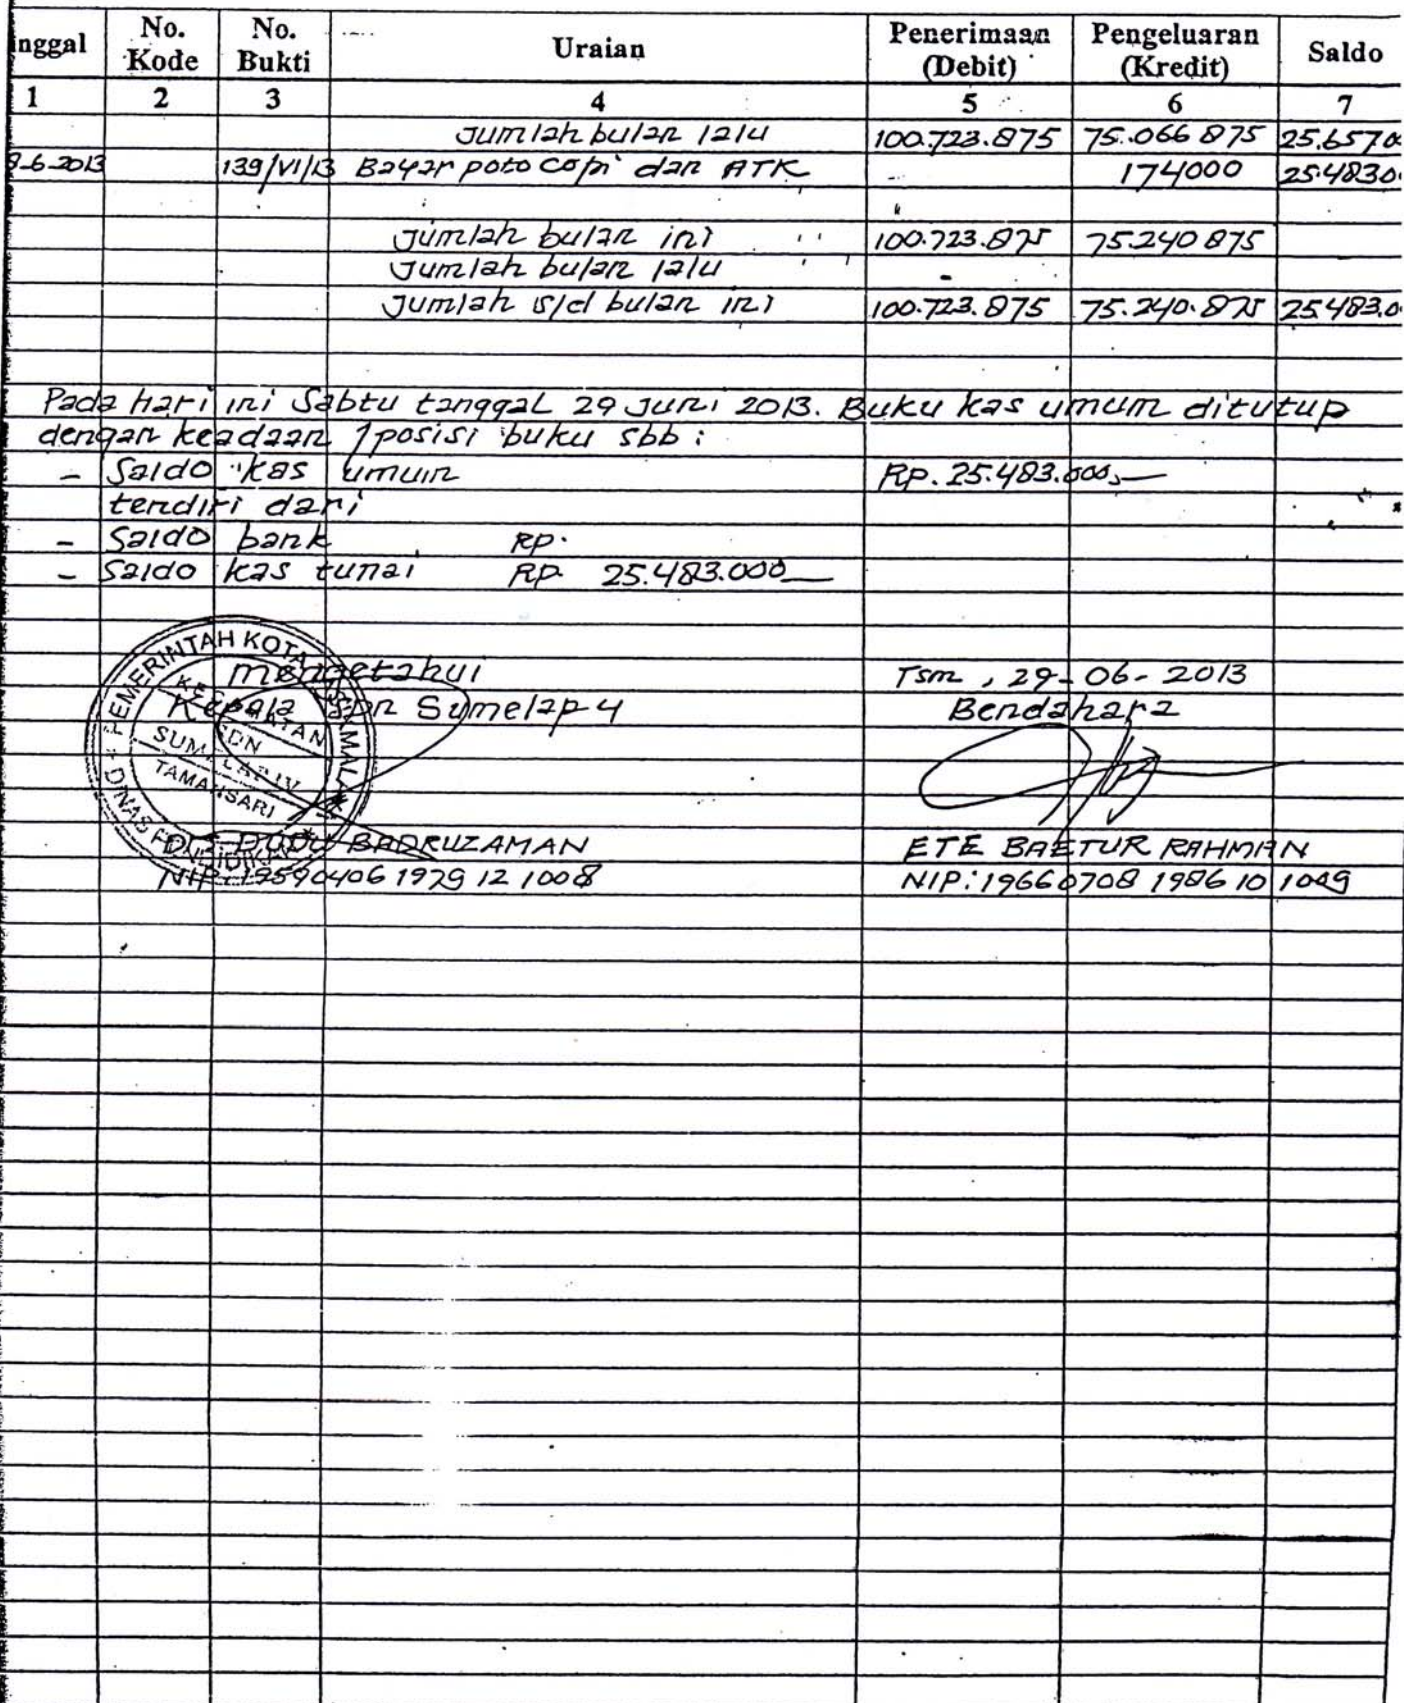 nggal No. Kode No. Bukti Uraian Penerimaan (Debit) Pengeluaran (Kredit) Saldo
1 2 3 4 5 6 7
Jumlah bulan lalu 100.723.875 75.066 875 25.6570
8-6-2013 139/VI/13 Bayar poto copi dan ATK - 174000 25.4830
Jumlah bulan ini 100.723.875 75.240 875
Jumlah bulan lalu -
Jumlah s/d bulan ini 100.723.875 75.240.875 25.483.0
Pada hari ini Sabtu tanggal 29 Juni 2013. Buku kas umum ditutup
dengan keadaan / posisi buku sbb :
- Saldo kas umum Rp. 25.483.000,-
terdiri dari
- Saldo bank Rp.
- Saldo kas tunai Rp. 25.483.000
PEMERINTAH KOTA TASIKMALAYA
DINAS PENDIDIKAN
KECAMATAN
SDN
SUMELAP IV
TAMANSARI
mengetahui Tsm, 29-06-2013
Kepala SDN Sumelap 4 Bendahara
DUDU BADRUZAMAN ETE BAETUR RAHMAN
NIP. 19590406 1979 12 1008 NIP: 19660708 1986 10 1009